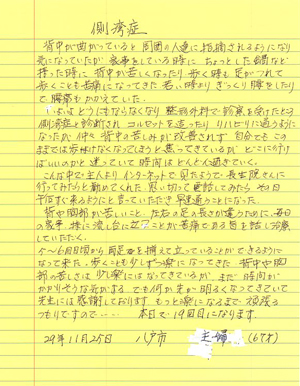 側弯症
背中が曲がっていると周囲の人達に指摘されるようになり
気になっていたが家事をしている時にちょっとした鍋など
持った時に背中が苦しくなったり歩く時も足がつれて
歩くことも苦痛になってきた 若い時よりぎっくり腰をしたり
で腰痛もかかえていた。
いよいよどうにもならなくなり整形外科で診察を受けたところ
側湾症と診断され コルセットを造ったりリハビリに通うように
なったが仲々背中の苦しみが改善されず 自分でもこの
ままでは歩けなくなってしまうと焦ってきているが どこに行けば
ばいいのかと迷っていて時間はどんどん過ぎていく。
こんな中で主人よりインターネットで見たようで長生院さんに
行ってみたらと勧めてくれた 思い切って電話してみたら 今日
今日すぐ来るようにと言っていただき早速通うことになった
背中や胸部が苦しいこと、左右の足の長さが違うために、毎日
の家事、特に流し台に立つことが苦痛である旨を話し治療
していただく。
5～6回目頃から両足を揃えて立っていることができるように
なって来た。歩くことも少しずつ楽になってきた 背中や胸
部の苦しさは少し楽にはなってきているが、まだ時間が
かかりそうな気がする でも何か光が明るくなってきていて
先生には感謝しております もっと楽になるまで頑張る
つもりですので‥‥ 本日で19回目になります。
29年11月25日 八戸市 主婦 (67才)